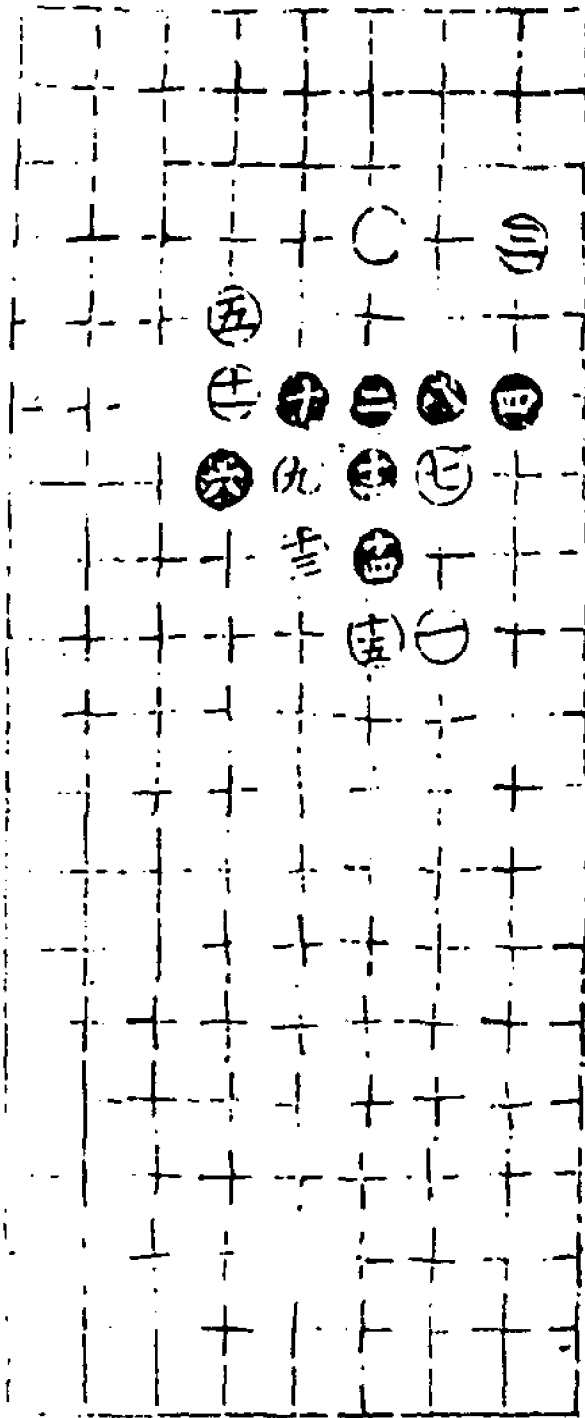 三
五
十一 十 二 八 四
六 九 十二 七
十三 十四
十五 一